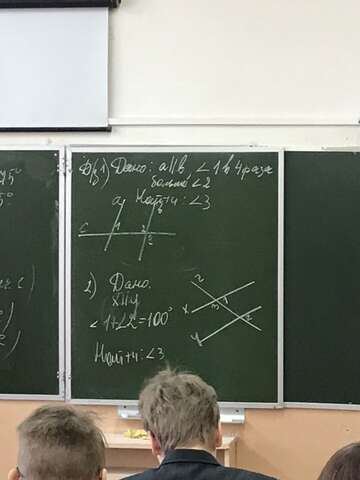 Д/з 1) Дано: a∥b, ∠1 в 4 раза
больше ∠2
Найти: ∠3
a b
c 1 2
3
2) Дано:
x∥y
∠1+∠2=100°
Найти: ∠3
z
x 3 1
y 2
5°
5°